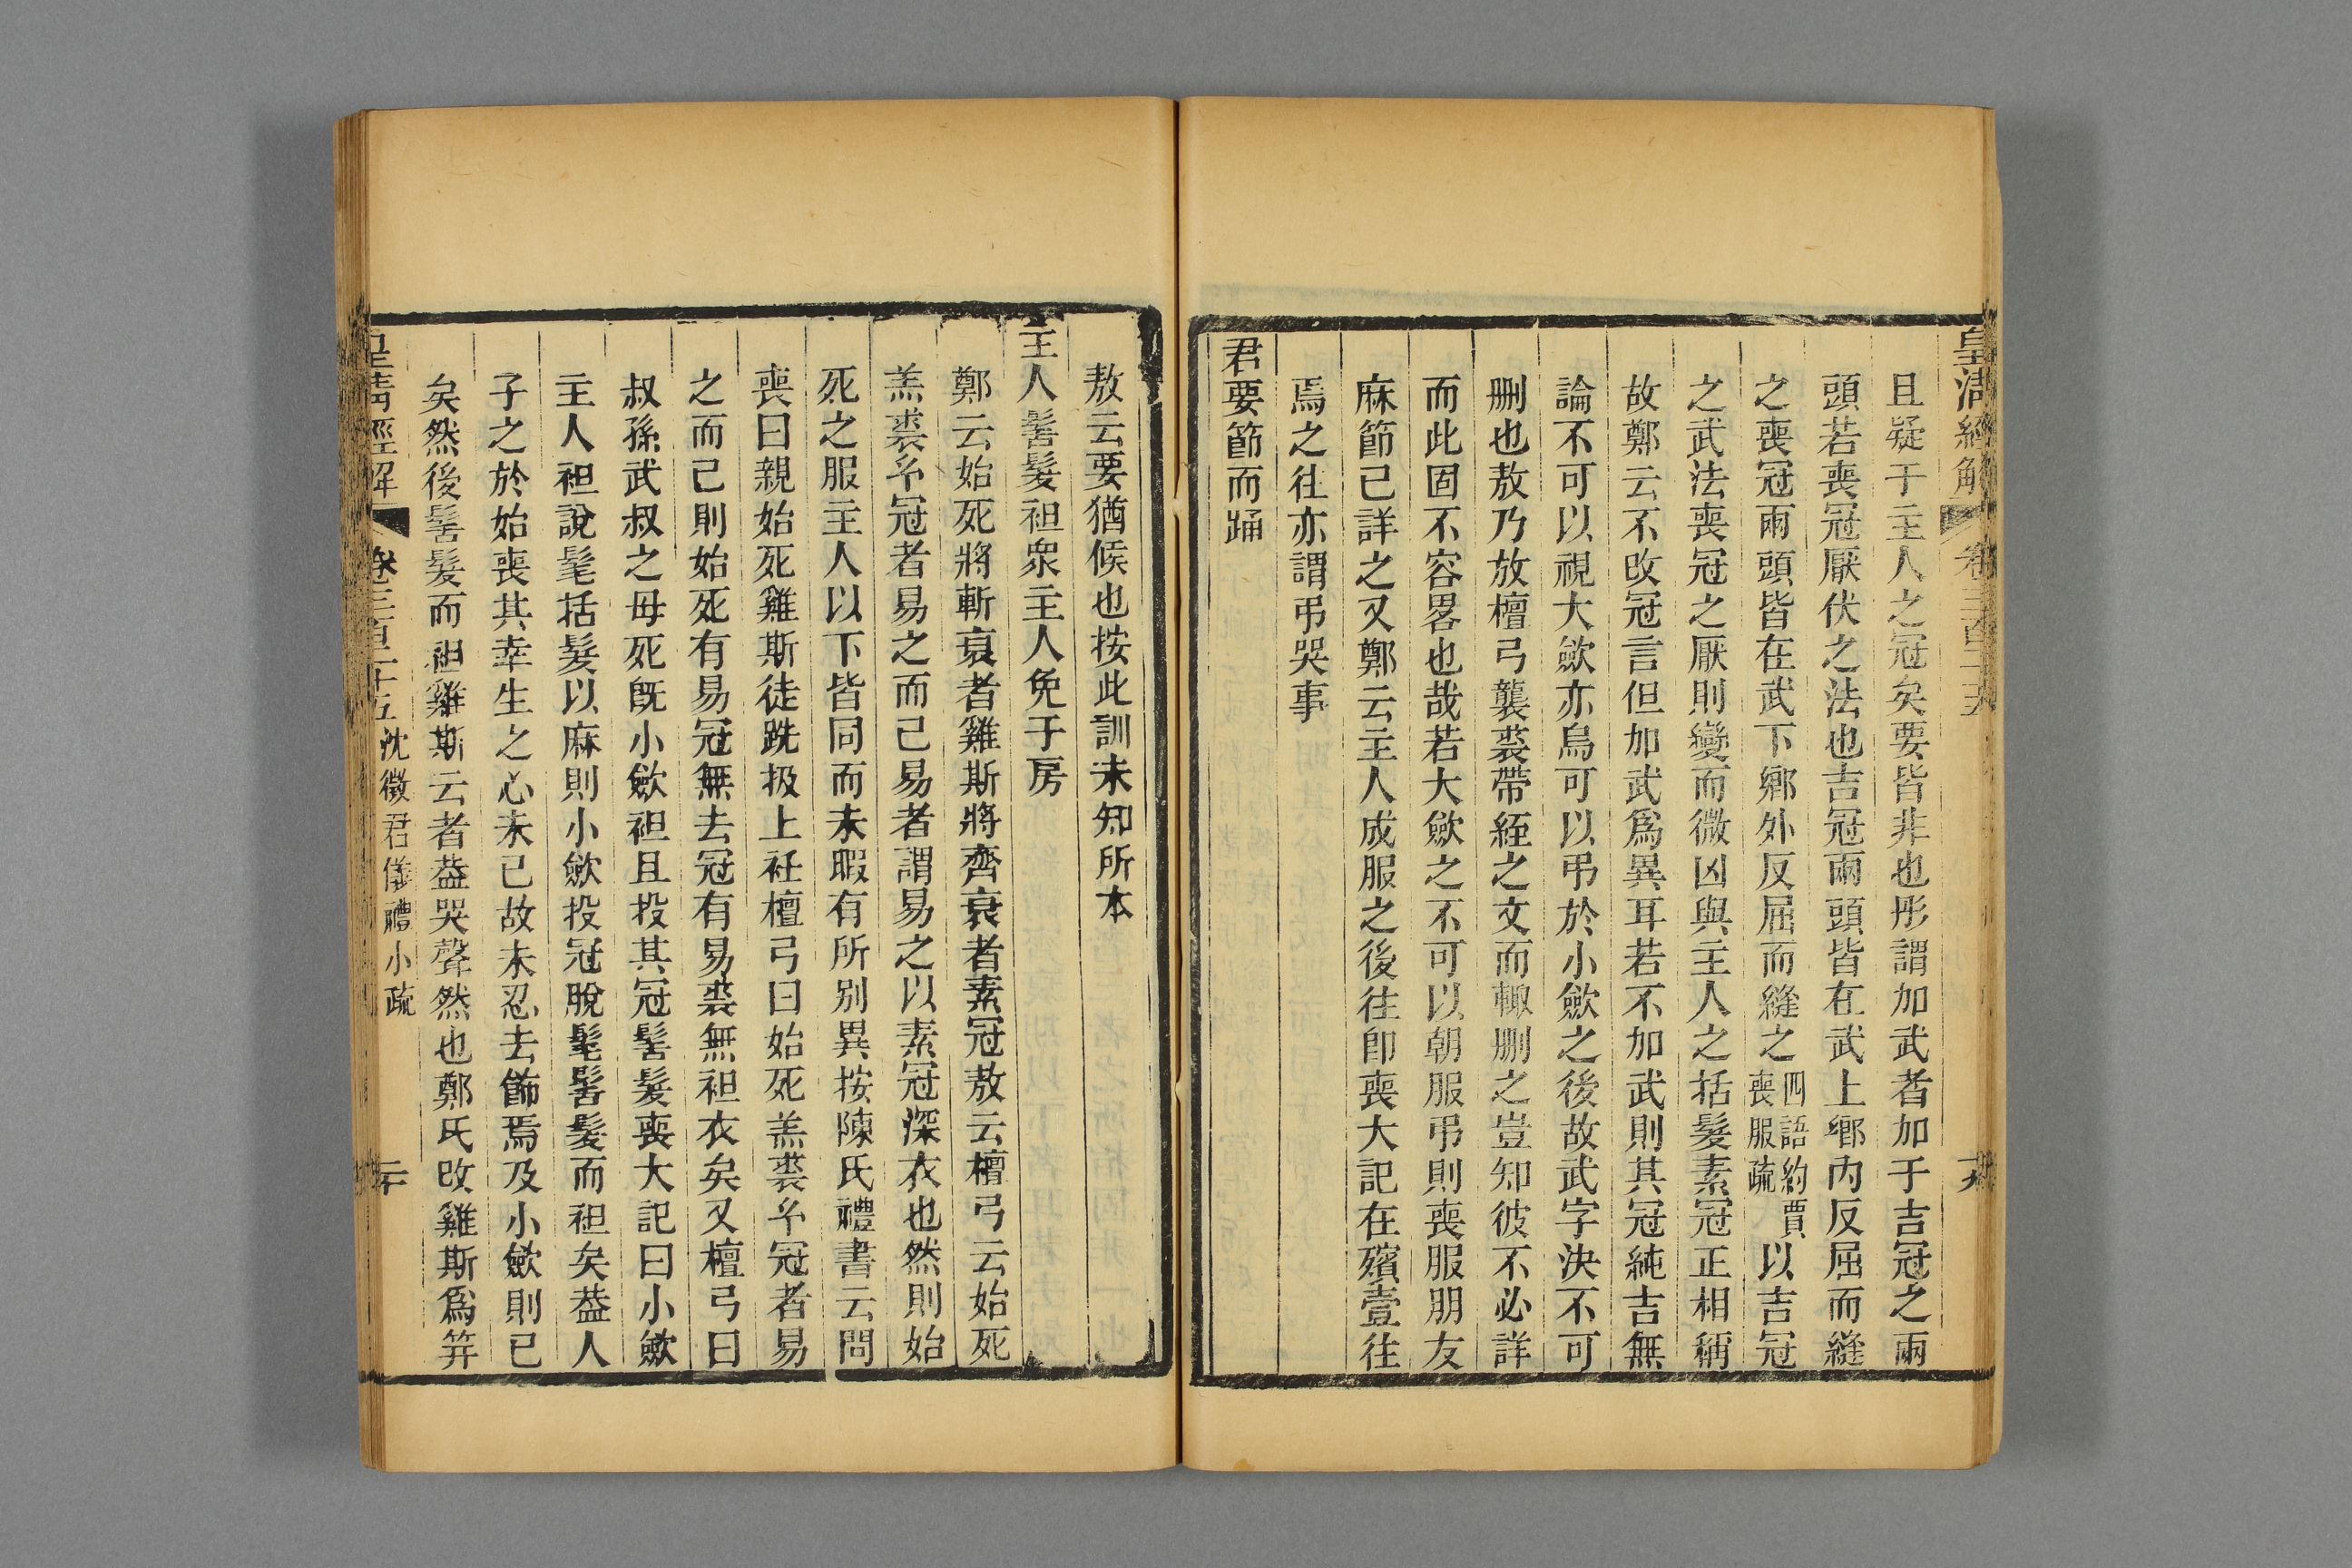 皇清經解 卷三百二十五 十九
且疑于主人之冠矣要皆非也彤謂加武者加于吉冠之兩
頭若喪冠厭伏之法也吉冠兩頭皆在武上鄉內反屈而縫
之喪冠兩頭皆在武下鄉外反屈而縫之四語約賈喪服疏以吉冠
之武法喪冠之厭則變而微凶與主人之括髮素冠正相稱
故鄭云不改冠言但加武爲異耳若不加武則其冠純吉無
論不可以視大斂亦烏可以弔於小斂之後故武字決不可
刪也敖乃放檀弓襲裘帶絰之文而輒刪之豈知彼不必詳
而此固不容畧也哉若大斂之不可以朝服弔則喪服朋友
麻節已詳之又鄭云主人成服之後往卽喪大記在殯壹往
焉之往亦謂弔哭事
君要節而踊
敖云要猶候也按此訓未知所本
主人髻髮袒衆主人免于房
鄭云始死將斬衰者雞斯將齊衰者素冠敖云檀弓云始死
羔裘𤣥冠者易之而已易者謂易之以素冠深衣也然則始
死之服主人以下皆同而未暇有所别異按陳氏禮書云問
喪曰親始死雞斯徒跣扱上衽檀弓曰始死羔裘𤣥冠者易
之而已則始死有易冠無去冠有易裘無袒衣矣又檀弓曰
叔孫武叔之母死旣小斂袒且投其冠髻髮喪大記曰小斂
主人袒說髦括髮以麻則小斂投冠脫髦髻髮而袒矣葢人
子之於始喪其幸生之心未已故未忍去飾焉及小斂則已
矣然後髻髮而袒雞斯云者葢哭聲然也鄭氏改雞斯爲笄
皇清經解 卷三百二十五 沈徵君儀禮小疏 二十